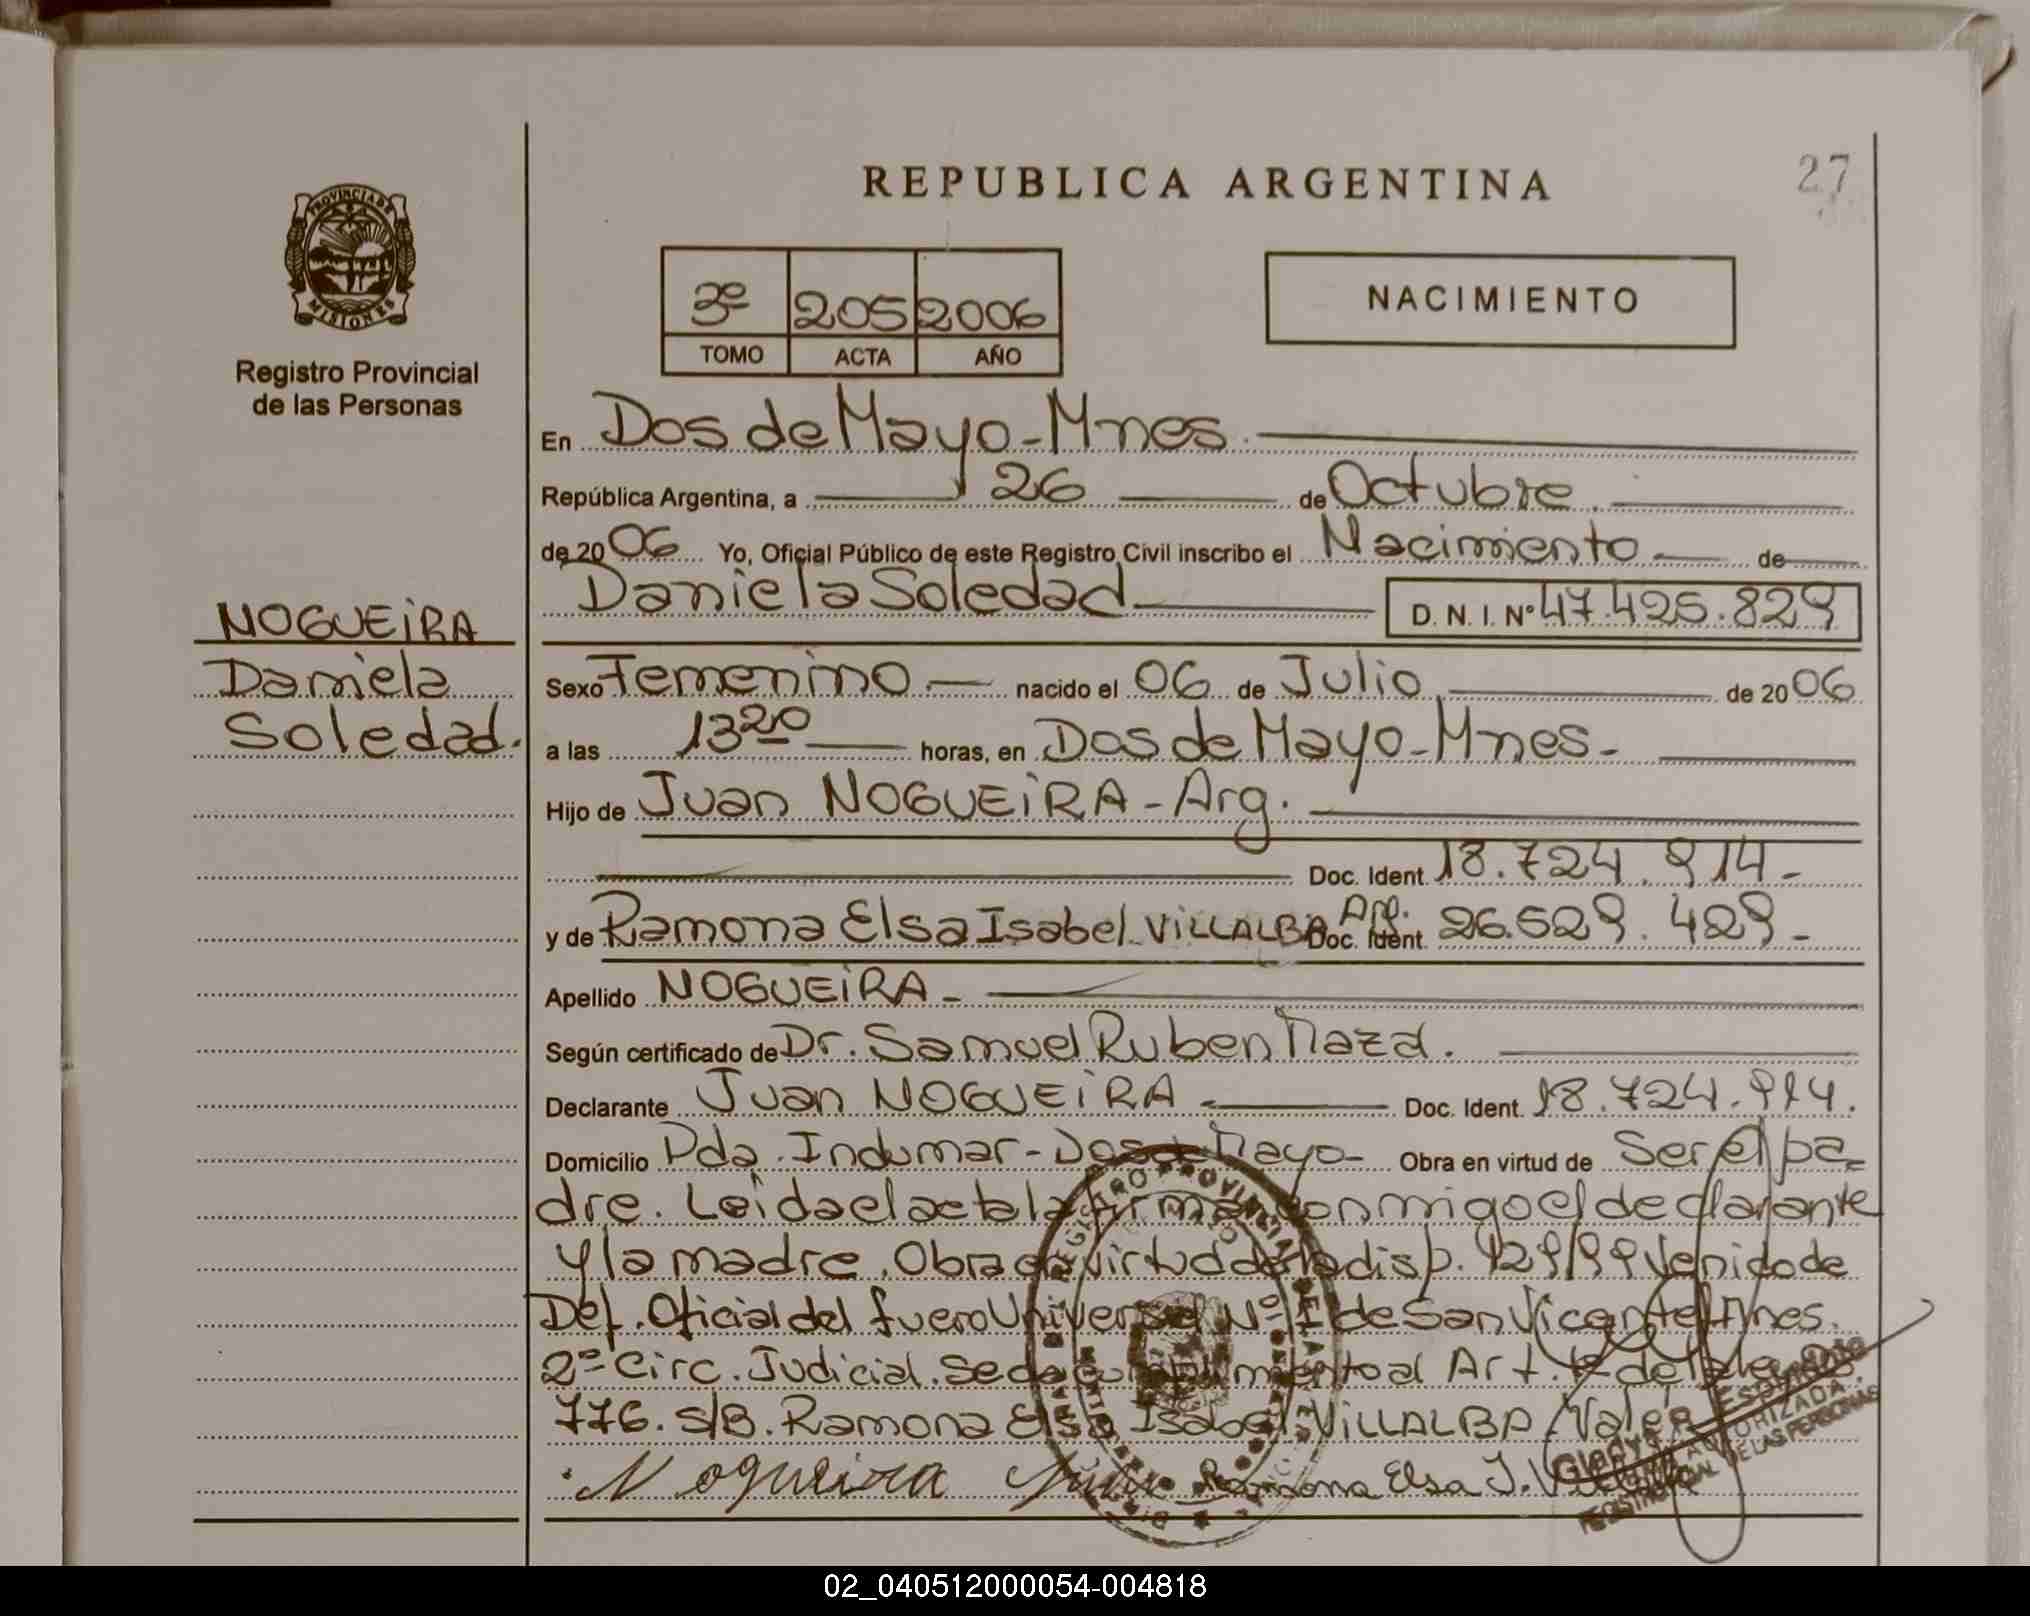 PROVINCIA DE
MISIONES
Registro Provincial
de las Personas
NOGUEiRA
Daniela
Soledad.
REPUBLICA ARGENTINA
27
3º 205 2006
TOMO ACTA AÑO
NACIMIENTO
En Dos de Mayo - Mnes.
República Argentina, a 26 de Octubre
de 2006 Yo, Oficial Público de este Registro Civil inscribo el Nacimiento de
Daniela Soledad D. N. I. Nº 47.425.829
Sexo Femenino nacido el 06 de Julio de 2006
a las 13 20 horas, en Dos de Mayo - Mnes -
Hijo de Juan NOGUEiRA - Arg.
Doc. Ident. 18.724.914 -
y de Ramona Elsa Isabel ViLLALBA Arg. Doc. Ident 26.529.429 -
Apellido NOGUEiRA -
Según certificado de Dr. Samuel Ruben Maza.
Declarante Juan NOGUEiRA - Doc. Ident. 18.724.914.
Domicilio Pda. Indumar - Dos de Mayo - Obra en virtud de Ser el pa-
dre. Leida el acta la firman conmigo el declarante
y la madre. Obra en virtud de la disp. 129/99 venido de
Def. Oficial del fuero Universal Nº 1 de San Vicente Mnes.
2º Circ. Judicial. Se da cumplimiento al Art. 1º de la ley
776. S/B. Ramona Elsa Isabel ViLLALBA. Vale
Nogueira Juan Ramona Elsa I.
REGISTRO PROVINCIAL DE LAS PERSONAS
Gladys
AUTORIZADA
REGISTRO PROVINCIAL DE LAS PERSONAS
02_040512000054-004818